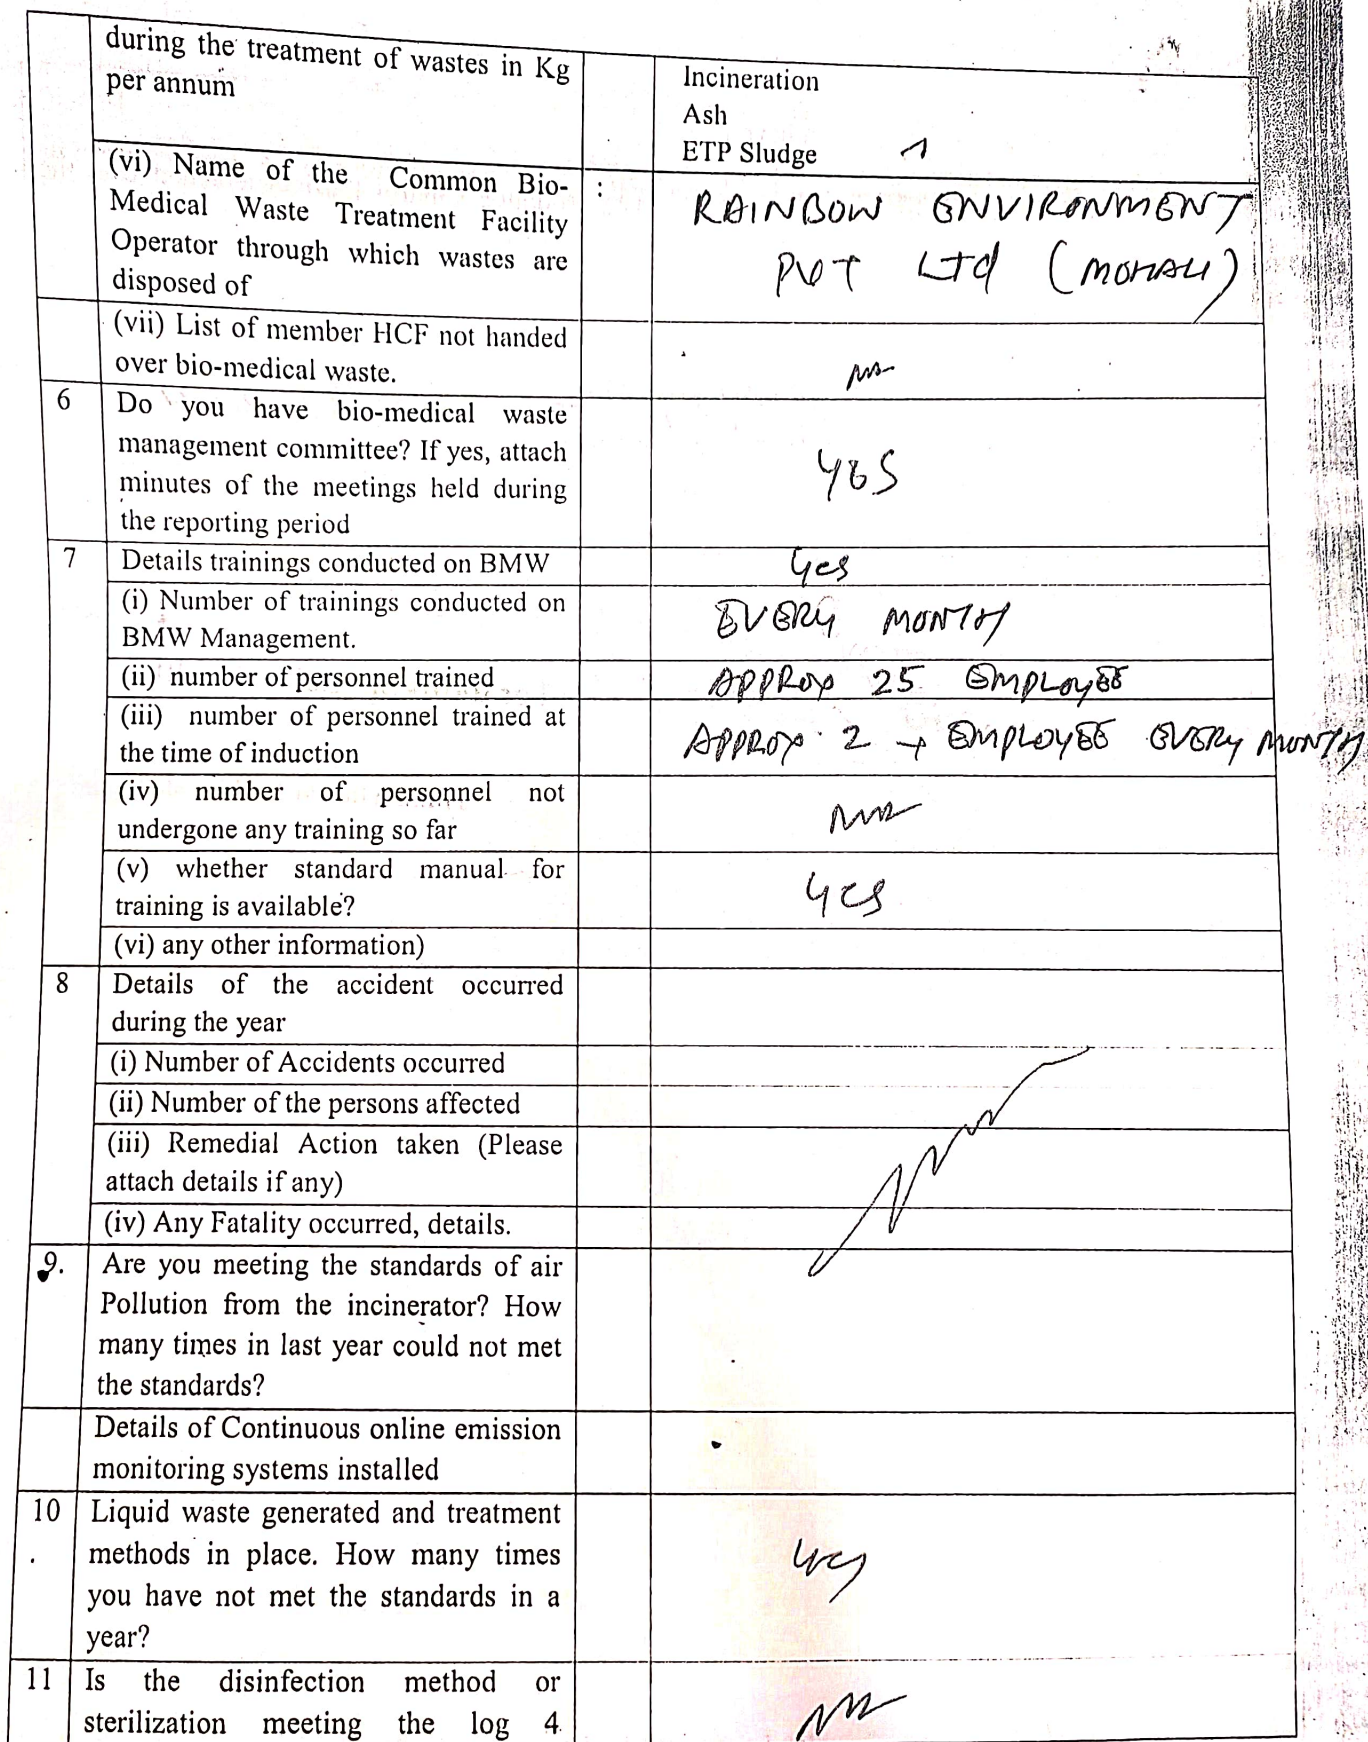 during the treatment of wastes in Kg
per annum
Incineration
Ash
ETP Sludge
(vi) Name of the Common Bio-
Medical Waste Treatment Facility
Operator through which wastes are
disposed of
:
RAINBOW ENVIRONMENT
PVT Ltd (MOHALI)
(vii) List of member HCF not handed
over bio-medical waste.
6
Do you have bio-medical waste
management committee? If yes, attach
minutes of the meetings held during
the reporting period
YES
7
Details trainings conducted on BMW
Yes
(i) Number of trainings conducted on
BMW Management.
EVERY MONTH
(ii) number of personnel trained
APPROX 25 EMPLOYEE
(iii) number of personnel trained at
the time of induction
APPROX 2 EMPLOYEE EVERY MONTH
(iv) number of personnel not
undergone any training so far
(v) whether standard manual for
training is available?
Yes
(vi) any other information)
8
Details of the accident occurred
during the year
(i) Number of Accidents occurred
(ii) Number of the persons affected
(iii) Remedial Action taken (Please
attach details if any)
(iv) Any Fatality occurred, details.
9.
Are you meeting the standards of air
Pollution from the incinerator? How
many times in last year could not met
the standards?
Details of Continuous online emission
monitoring systems installed
10
.
Liquid waste generated and treatment
methods in place. How many times
you have not met the standards in a
year?
Yes
11
Is the disinfection method or
sterilization meeting the log 4